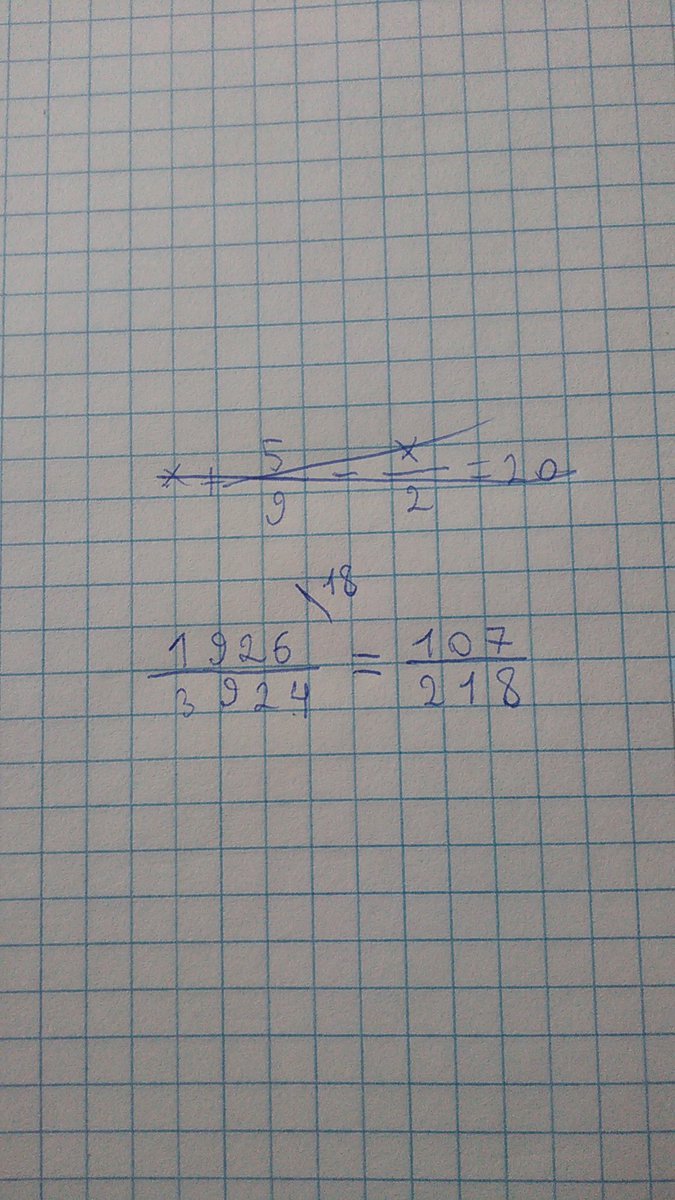 x + 5/9 - x/2 = 20
\18
1926/3924 = 107/218